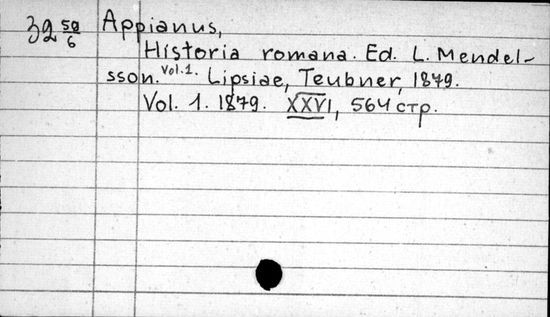 32 59/6 Appianus,
Historia romana. Ed. L. Mendel-
sson. Vol.1. Lipsiae, Teubner, 1879.
Vol. 1. 1879. XXVI, 564 стр.